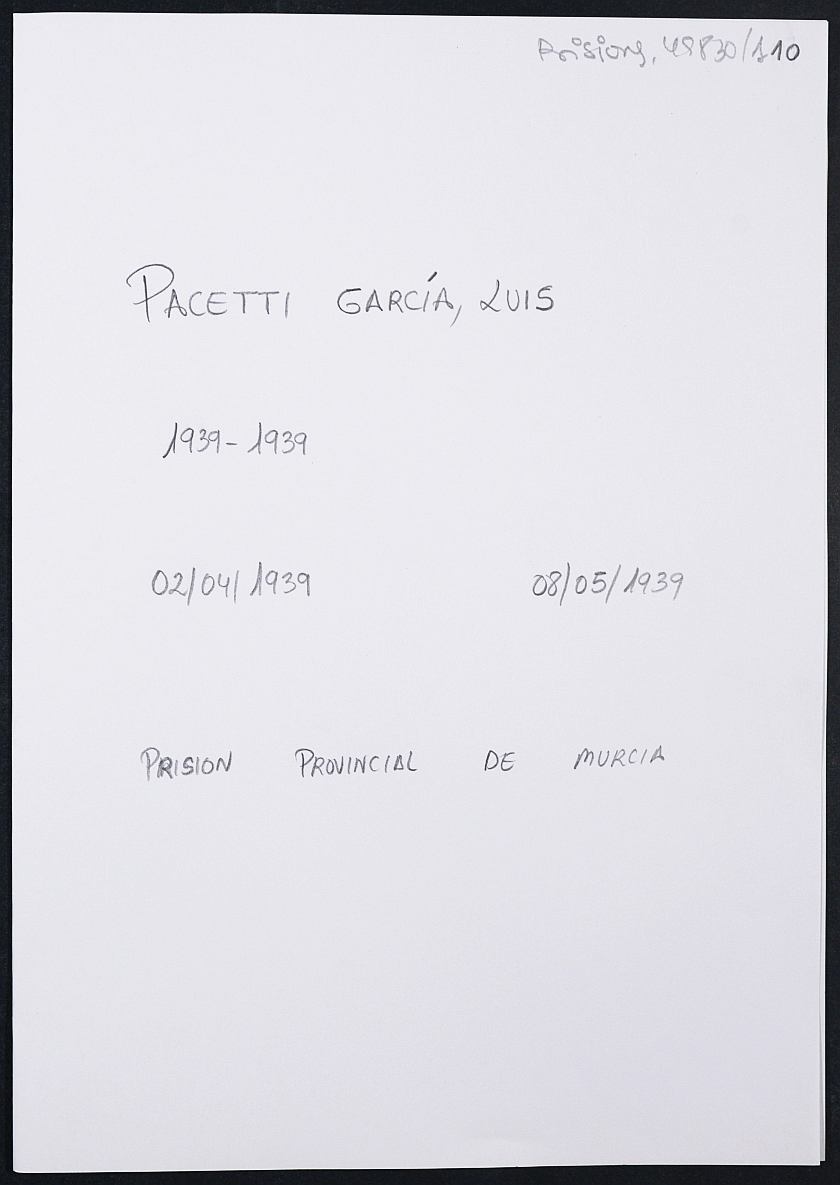 Prisiones, 49830/110
PACETTI GARCÍA, LUIS
1939-1939
02/04/1939 08/05/1939
PRISION PROVINCIAL DE MURCIA